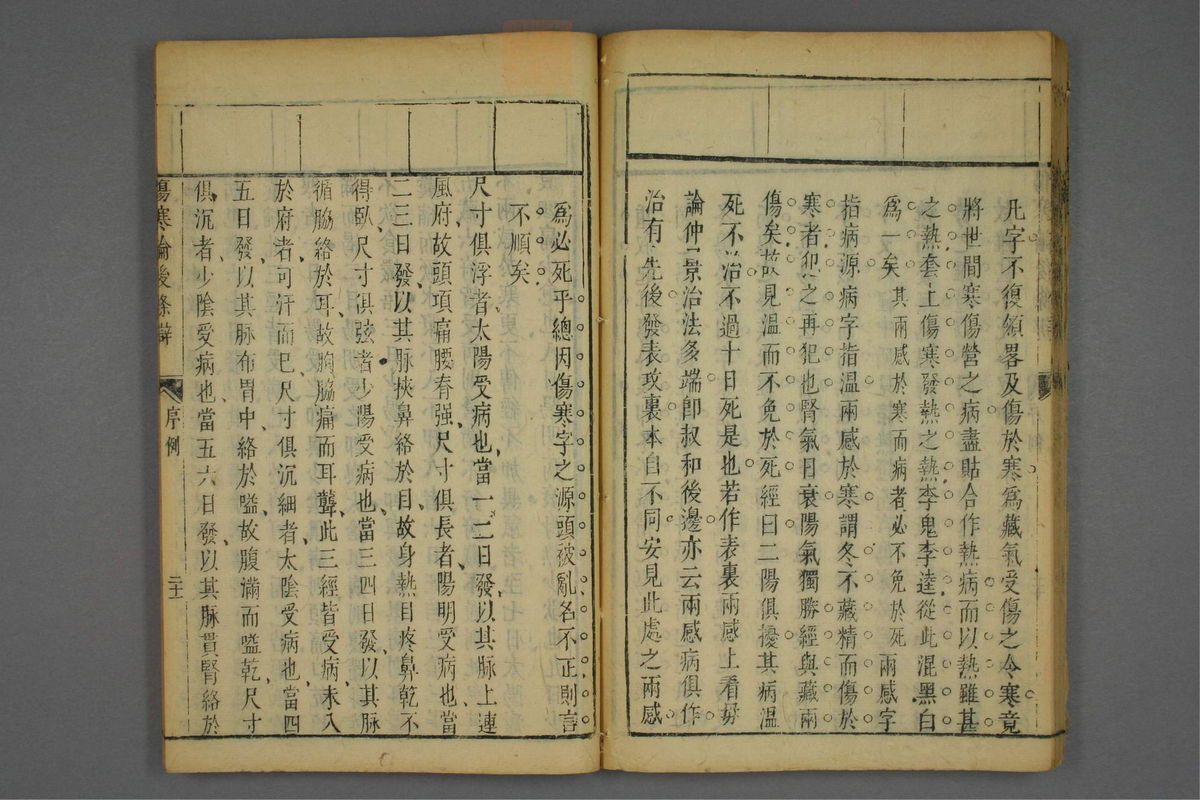 凡字不復領畧及傷於寒爲藏氣受傷之令寒竟
將世間寒傷營之病盡貼合作熱病而以熱雖甚
之熱套上傷寒發熱之熱李鬼李逵從此混黑白
爲一矣其兩感於寒而病者必不免於死兩感字
指病源病字指温兩感於寒謂冬不藏精而傷於
寒者犯之再犯也腎氣日衰陽氣獨勝經與藏兩
傷矣故見温而不免於死經曰二陽俱擾其病温
死不治不過十日死是也若作表裏兩感上看毋
論仲景治法多端卽叔和後邊亦云兩感病俱作
治有先後發表攻裏本自不同安見此處之兩感
爲必死乎總因傷寒字之源頭被亂名不正則言
不順矣
尺寸俱浮者太陽受病也當一二日發以其脉上連
風府故頭項痛腰脊强尺寸俱長者陽明受病也當
二三日發以其脉挾鼻絡於目故身熱目疼鼻乾不
得臥尺寸俱弦者少陽受病也當三四日發以其脉
循脇絡於耳故胸脇痛而耳聾此三經皆受病未入
於府者可汗而巳尺寸俱沉細者太陰受病也當四
五日發以其脉布胃中絡於嗌故腹滿而嗌乾尺寸
俱沉者少陰受病也當五六日發以其脉貫腎絡於
傷寒論後條辯 序例 二十一